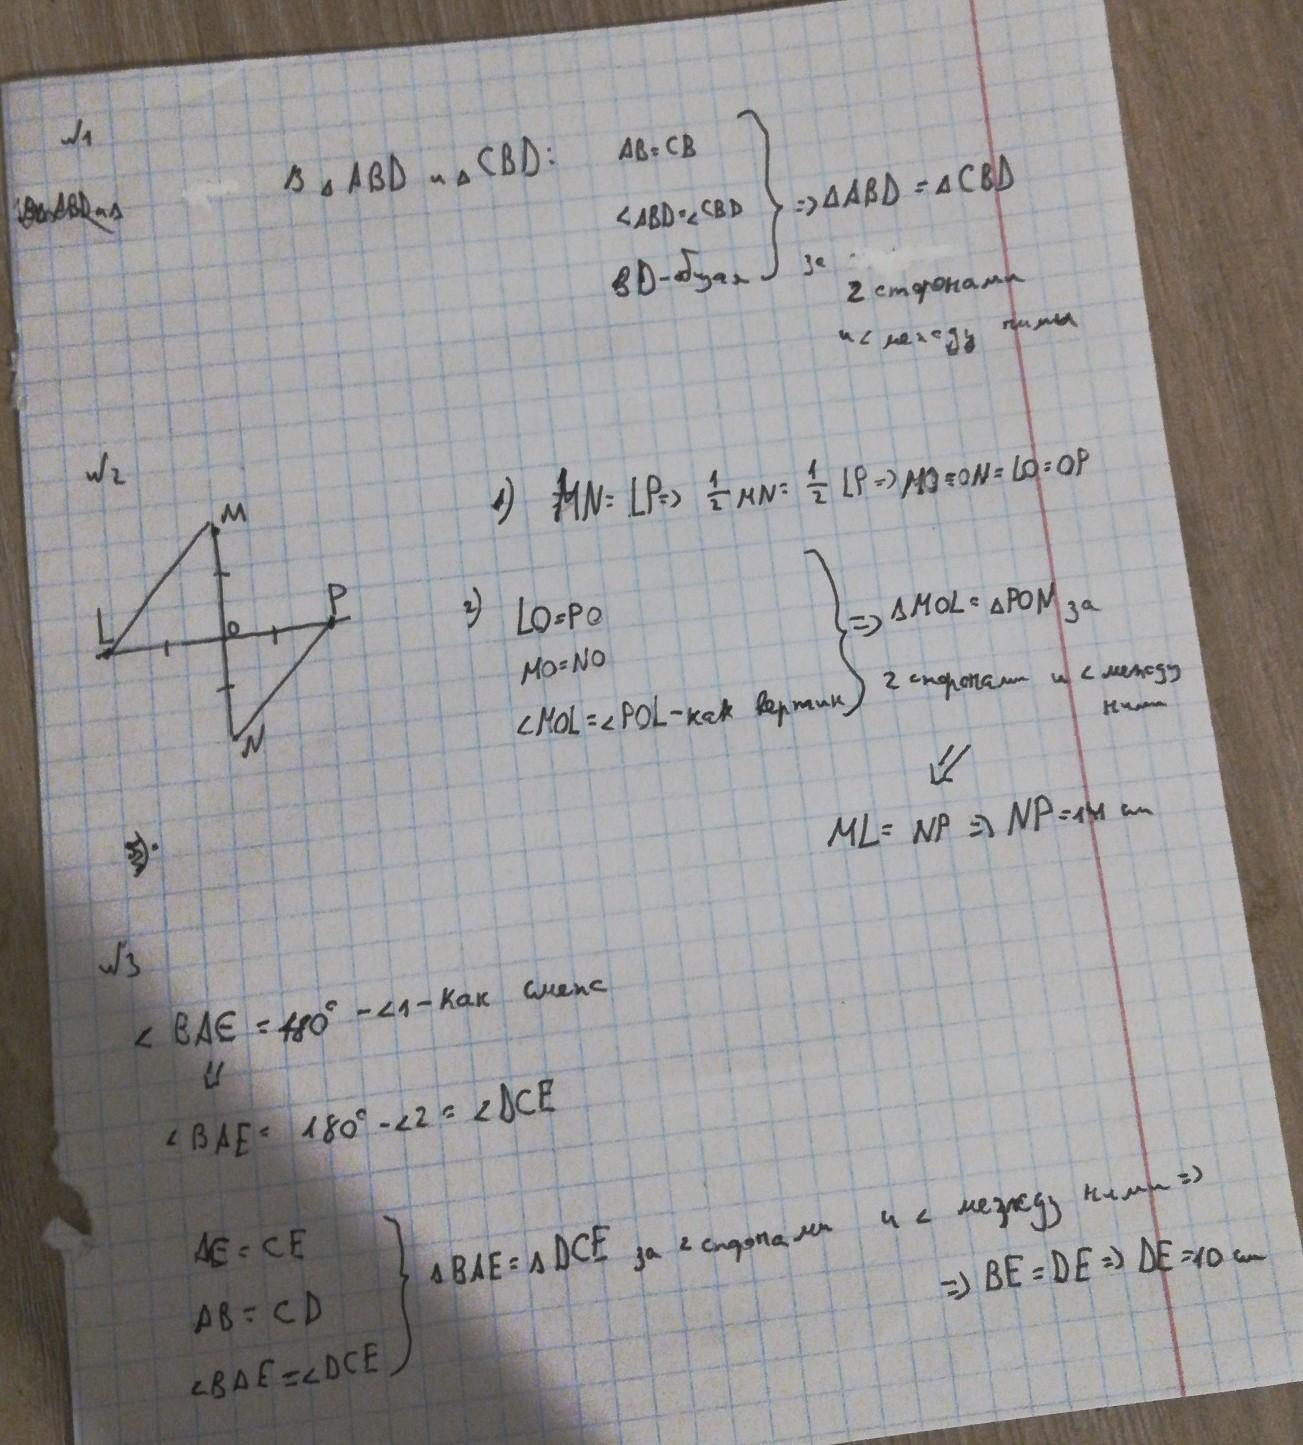 №1
В △ABD и △CBD:
AB=CB
∠ABD=∠CBD
BD-общая
=> △ABD = △CBD
за
2 сторонами
и ∠ между ними
№2
M
L
O
P
N
1) MN= LP=> 1/2 MN= 1/2 LP => MO=ON=LO=OP
2) LO=PO
MO=NO
∠MOL=∠POL-как вертик
=> △MOL=△PON за
2 сторонами и ∠ между
ними
⇓
ML= NP => NP=14 см
№3
∠BAE =180° -∠1-как смежс
⇓
∠BAE= 180°-∠2= ∠DCE
AE=CE
AB=CD
∠BAE=∠DCE
△BAE=△DCE за 2 сторонами и ∠ между ними =>
=> BE=DE=> DE=10 см